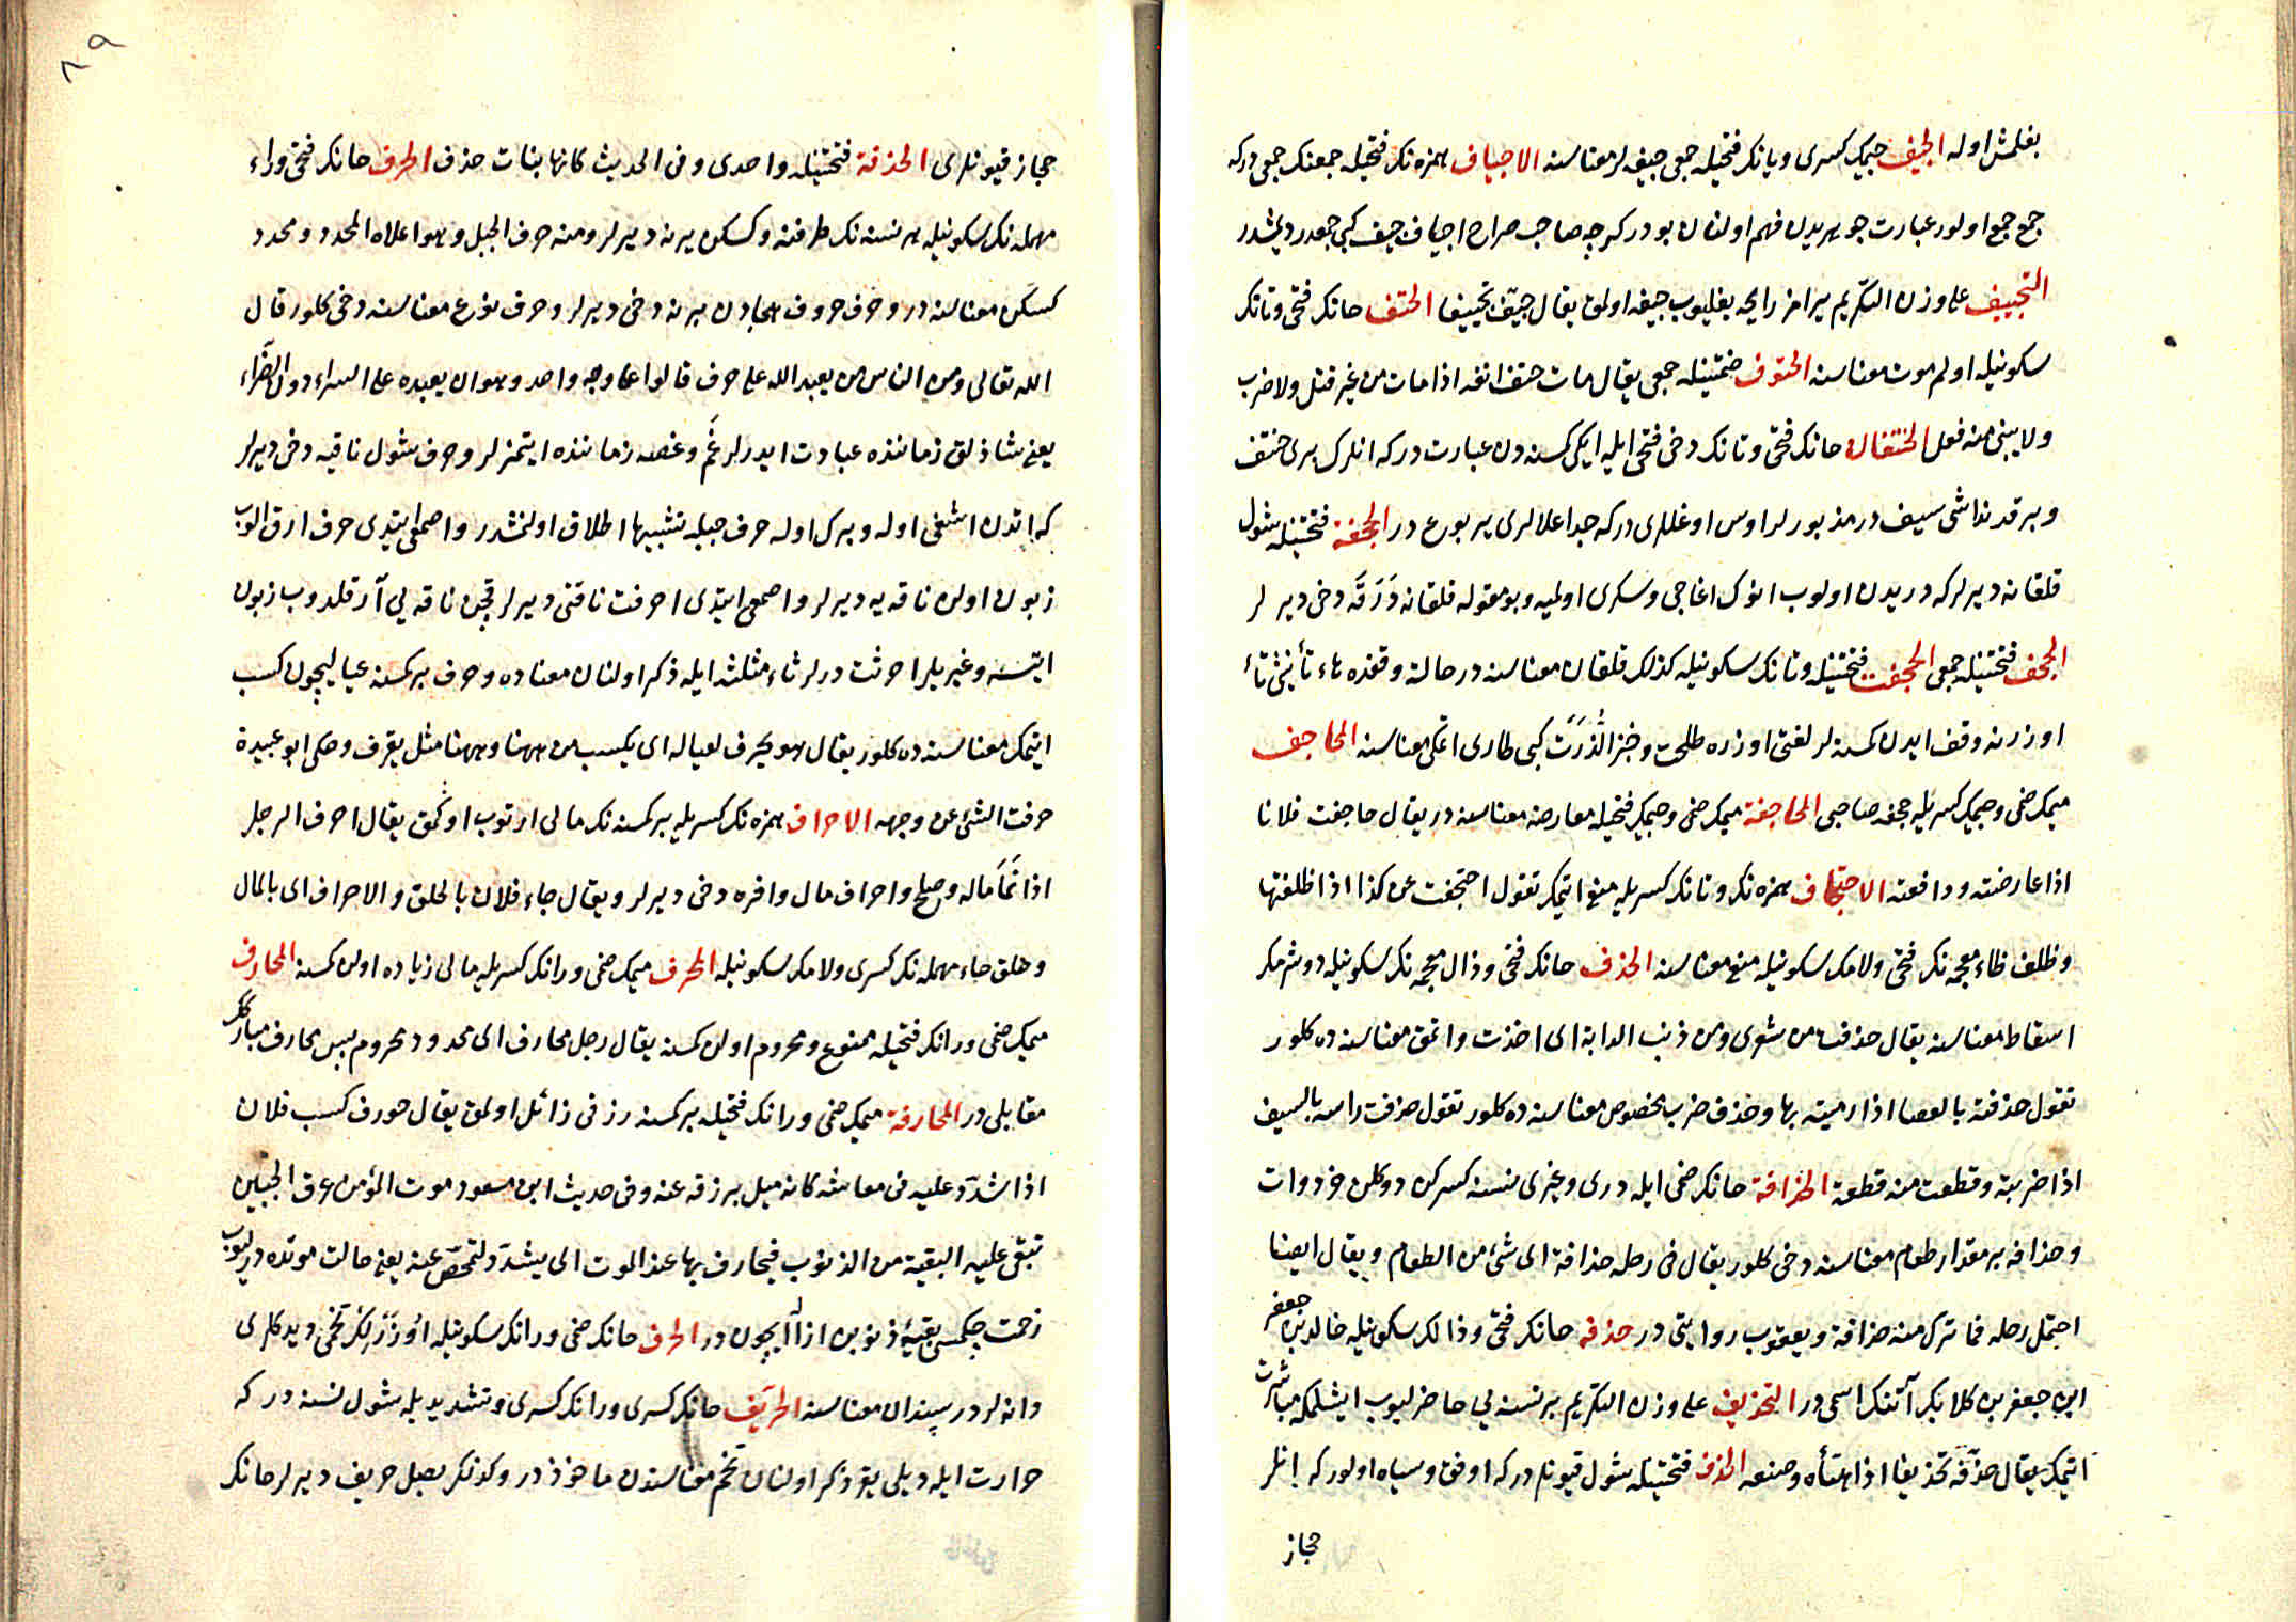 بغلمش اوله الجیف جیمک کسری ویانک فتحیله جمعی جیفه لر معناسنه الاجیاف همزه نک فتحیله جمعنک جمعی درکه
جمع جمع اولور عبارت جوهریدن فهم اولنان بودر کرچه صاحب صراح اجیاف جیف کبی جمعدر دیمشدر
التجییف علی وزن التکریم یرامز رایحه بغلیوب جیفه اولمق یقال جیّف تجییفا الحتف حانک فتحی وتانک
سکونیله اولم موت معناسنه الحتوف ضمتینله جمعی یقال مات حتف انفه اذا مات من غیر قتل ولا ضرب
ولا یبنی منه فعل الحنتفان حانک فتحی وتانک دخی فتحی ایله ایکی کسنه دن عبارت درکه انلرک بری حنتف
وبر قرنداشی سیف در مذبورلر اوس اوغللری درکه جد اعلالری یربوع در الحجفة فتحتینله شول
قلقانه دیرلرکه دریدن اولوب انوک اغاجی وسکری اولمیه وبومقوله قلقانه دَرَقَه دخی دیرلر
الحجف فتحتینله جمعی الحجفت فتحتینله وتانک سکونیله کذلک قلقان معناسنه در حالت وقفده هاء تأنیثی تأ
اوزرنه وقف ایدن کسنه لر لغتی اوزره طلحت وخبز الذُرَت کبی طاری اتمکی معناسنه المحاجف
میمک ضمی وجیمک کسریله حجفه صاحبی المحاجفة میمک ضمی وجیمک فتحیله معارضه معناسنه در یقال حاجفت فلانا
اذا عارضته ودافعته الاحتجاف همزه نک وتانک کسریله منع اتمک تقول احتجفت عن کذا اذا ظلفتها
وظلف ظاء معجمه نک فتحی ولامک سکونیله منع معناسنه الحذف حانک فتحی وذال معجمه نک سکونیله دوشرمک
اسقاط معناسنه یقال حذفت من شعری ومن ذنب الدابة ای اخذت واتمق معناسنه ده کلور
تقول حذفته بالعصا اذا رمیته بها وحذف ضرب مخصوص معناسنه ده کلور تقول حذفت راسه بالسیف
اذا ضربته وقطعت منه قطعة الحذافة حانک ضمی ایله دری وغیری نسنه کسرکن دوکلن خردوات
وحذافه بر مقدار طعام معناسنه دخی کلور یقال فی رحله حذافة ای شیٔ من الطعام ویقال ایضا
احتمل رحله فما ترک منه حذافة ویعقوب روایتی در حذفه حانک فتحی وذالک سکونیله خالد بن جعفر
ابن جعفر بن کلابک آتنک اسمی در التحذیف علی وزن التکریم بر نسنه یی حاضرلیوب ایشلمکه مباشرت
اتمک یقال حذّفه تحذیفا اذا هیّأه وصنعه الحذف فتحتینله شول قیونلر درکه اوفق وسیاه اولورکه انلر
حجاز
٨٩
حجاز قیونلری الحذفة فتحتینله واحدی وفی الحدیث کانها بنات حذف الحرف حانک فتحی وراء
مهمله نک سکونیله هر نسنه نک طرفنه وکسکن یرنه دیرلر ومنه حرف الجبل وهو اعلاه المحدد ومحدد
کسکن معناسنه در وحرف حروف هجادن برینه دخی دیرلر وحرف نوع معناسنه دخی کلور قال
الله تعالی ومن الناس من یعبد الله علی حرف قالوا علی وجه واحد وهو ان یعبده علی السراء دون الضّراء
یعنی شاذلق زماننده عبادت ایدرلر غم وغصه زماننده ایتمزلر وحرف شول ناقیه دخی دیرلر
که اتدن اشغی اوله وبرک اوله حرف جبله تشبیها اطلاق اولنمشدر واصمعی ایتدی حرف ارق اولوب
زبون اولن ناقه یه دیرلر واصمعی ایتدی احرفت ناقتی دیرلر قچن ناقه یی آرقلدوب زبون
ایتسه وغیریلر احرثت درلر ثاء مثلثه ایله ذکر اولنان معناده وحرف بر کسنه عیالیچون کسب
ایتمک معناسنه ده کلور یقال هو یحرف لعیاله ای یکسب من ههنا وههنا مثل یقرف وحکی ابو عبیدة
حرفت الشیٔ عن وجهه الاحراف همزه نک کسریله بر کسنه نک مالی ارتوب اوکمق یقال احرف الرجل
اذا نَمَا ماله وصلح واحراف مال وافره دخی دیرلر ویقال جاء فلان بالحلق والاحراف ای بالمال
وحلق حاء مهمله نک کسری ولامک سکونیله المحرف میمک ضمی ورانک کسریله مالی زیاده اولن کسنه المحارف
میمک ضمی ورانک فتحیله ممنوع ومحروم اولن کسنه یقال رجل محارف ای محدود محروم پس محارف مبارک
مقابلی در المحارفة میمک ضمی ورانک فتحیله بر کسنه رزقی زائل اولمق یقال حورف کسب فلان
اذا شدّد علیه فی معاشه کانه میل برزقه عنه وفی حدیث ابن مسعود موت المؤمن عرق الجبین
تبقی علیه البقیة من الذنوب فیحارف بها عند الموت ای یشدّد لتمحّص عنه یعنی حالت موتده درلیوب
زحمت چکمسی بقیۀ ذنوبن ازآله ایچون در الحرف حانک ضمی ورانک سکونیله اوزَرلِک تخمی دیدکلری
دانه لردر سپندان معناسنه الحرّیف حانک کسری ورانک کسری وتشدیدیله شول نسنه درکه
حرارت ایله دیلی یقه ذکر اولنان تخم معناسندن ماخوذدر وکونکر بصل حریف دیرلر حانک